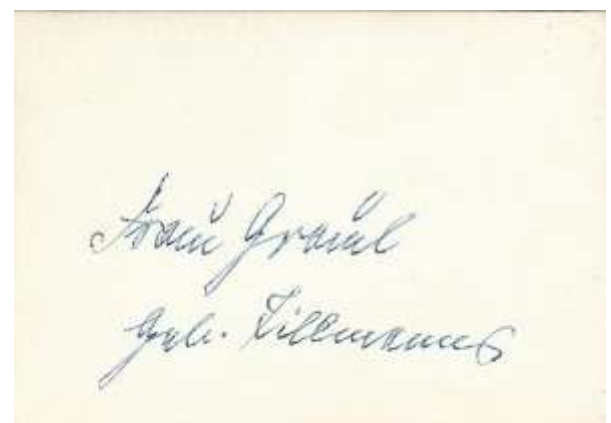 Frau Graul
geb. Tillmanns